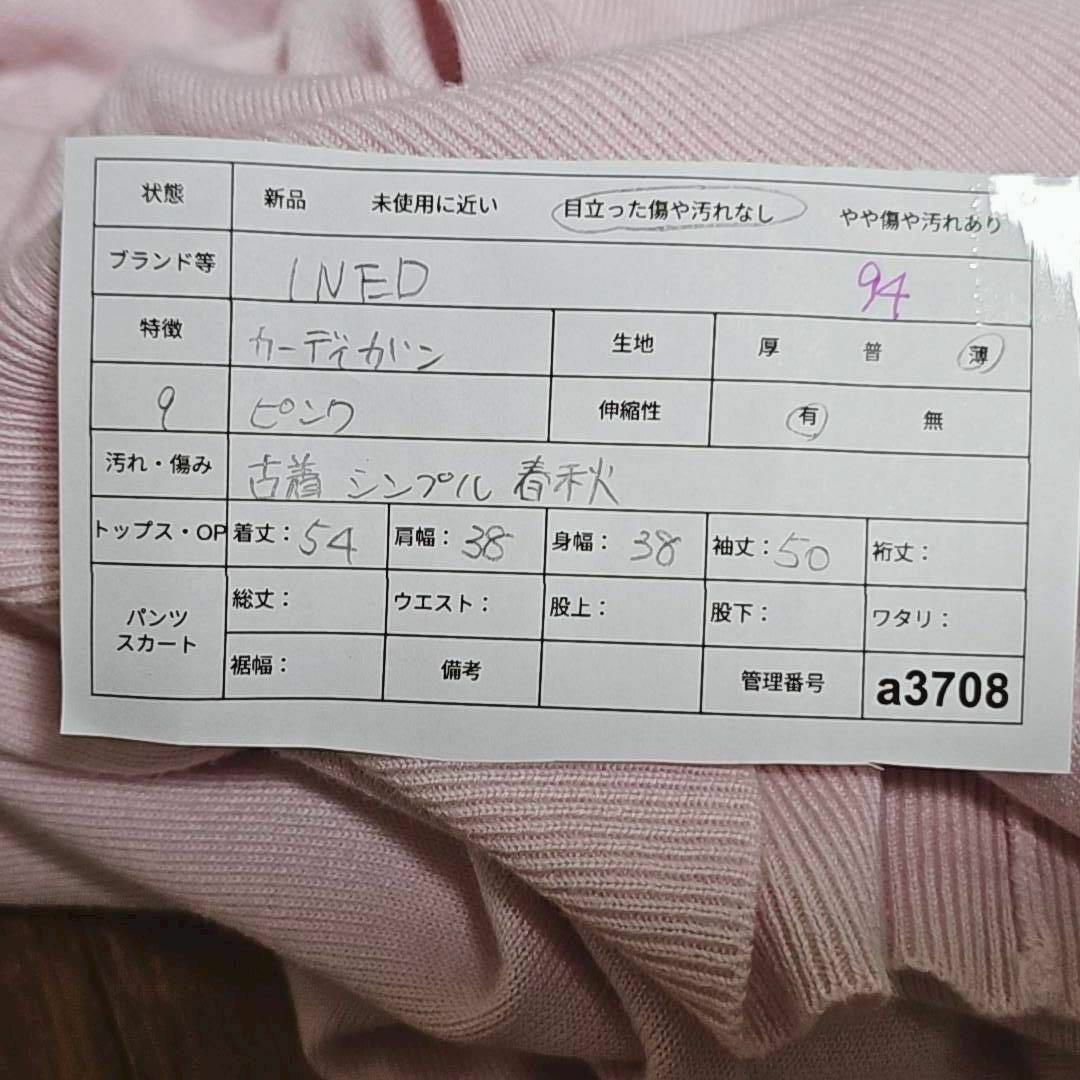 状態 新品 未使用に近い 目立った傷や汚れなし やや傷や汚れあり
ブランド等 INED 94
特徴 カーディガン 生地 厚 普 薄
9 ピンク 伸縮性 有 無
汚れ・傷み 古着 シンプル 春秋
トップス・OP 着丈：54 肩幅：38 身幅：38 袖丈：50 裄丈：
パンツ スカート 総丈： ウエスト： 股上： 股下： ワタリ：
裾幅： 備考 管理番号 a3708